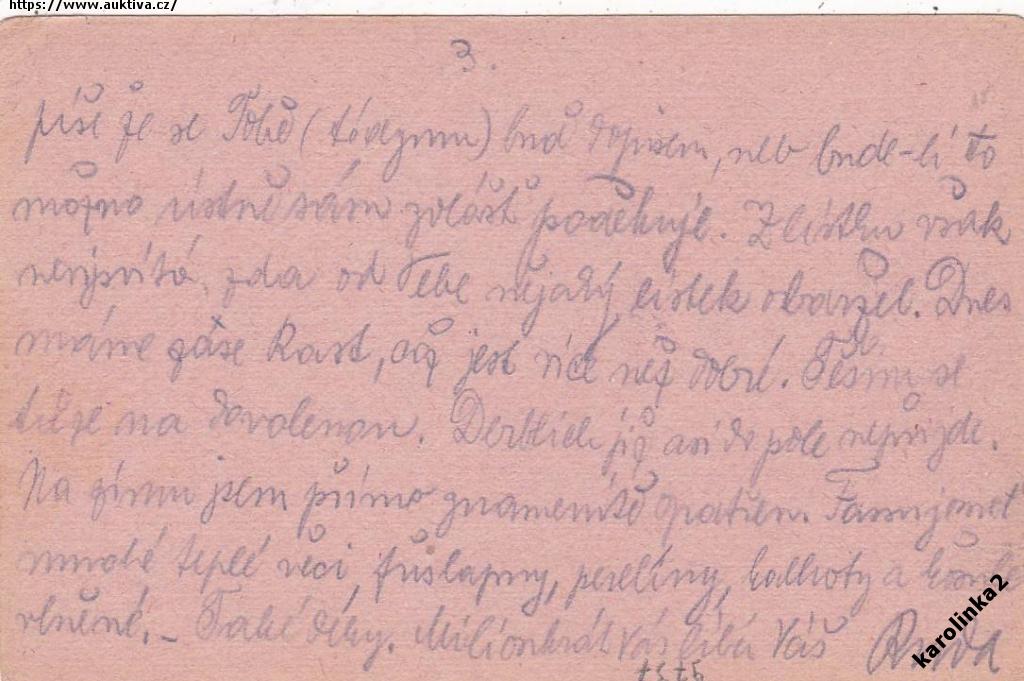 https://www.auktiva.cz/
3.
píše že se Tobě ( ) buď dopisem, neb bude-li to
možno ústně sám zvlášť poděkuje. Z lístku však
nevysvítá, zda od Tebe nějaký lístek obdržel. Dnes
máme zase Rast, což jest více než dobré. Těším se
na dovolenou. již asi do pole nepřijde.
Na zimu jsem přímo znamenitě opatřen.
mnohé teplé věci, fuslapny, pereliny, kalhoty a košile
vlněné. – Také deky. Milionkrát Vás líbá Váš Ruda
karolinka2